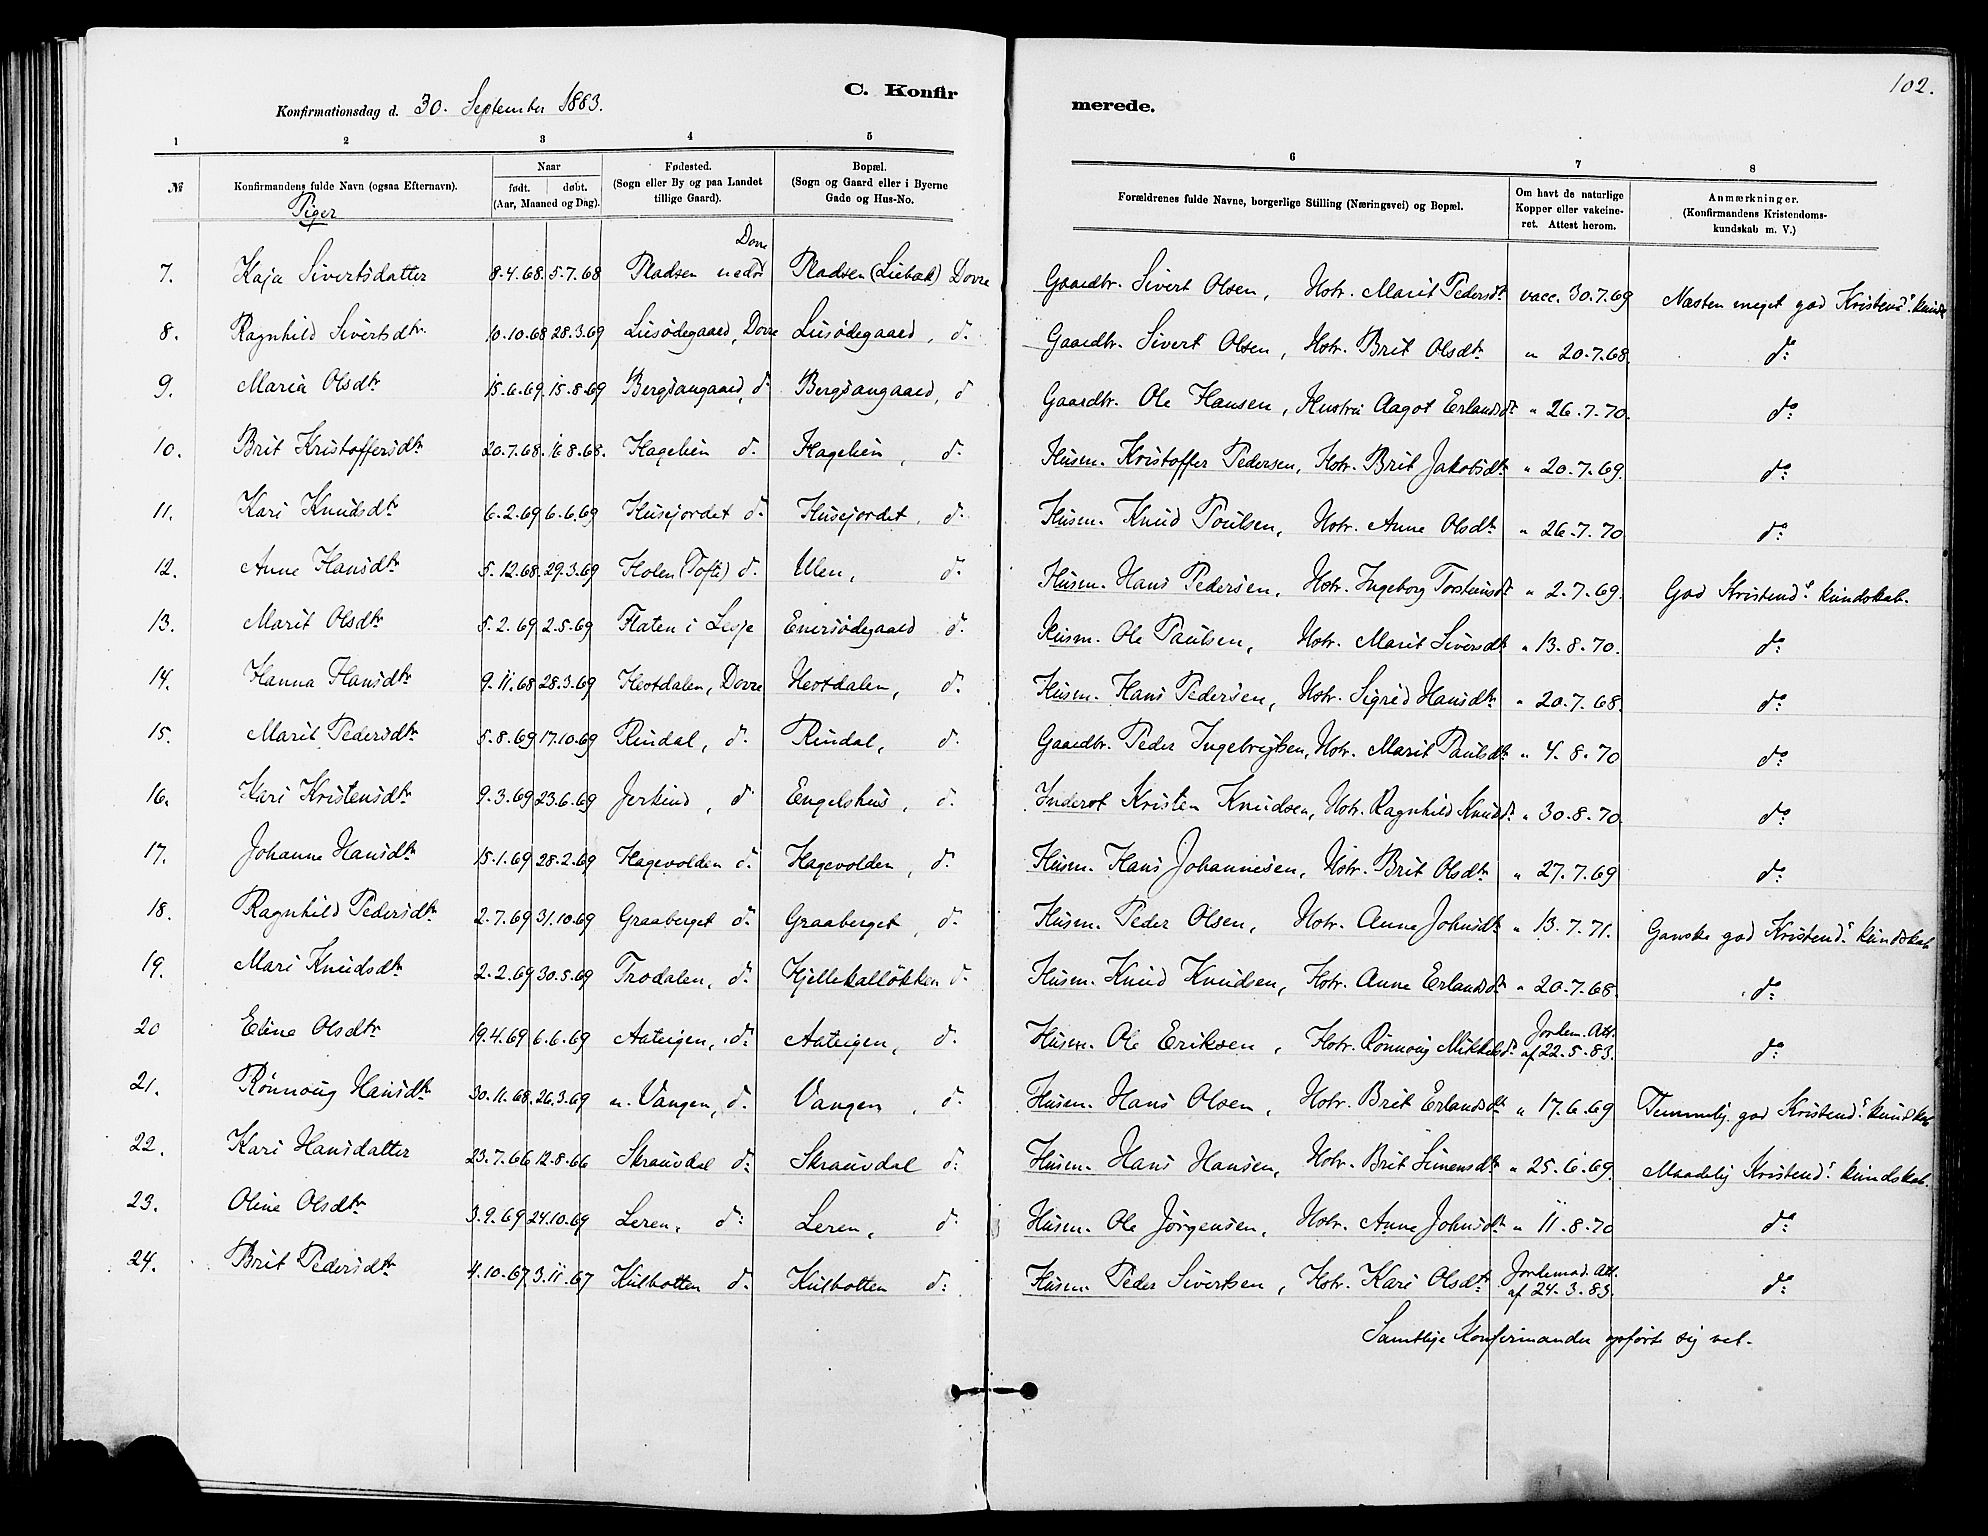 102.
C. Konfirmerede.
Konfirmationsdag d. 30. September 1883.
1 2 3 4 5 6 7 8
№ Konfirmandens fulde Navn (ogsaa Efternavn). Naar født. døbt. (Aar, Maaned og Dag). Fødested. (Sogn eller By og paa Landet tillige Gaard). Bopæl. (Sogn og Gaard eller i Byerne Gade og Hus-No. Forældrenes fulde Navne, borgerlige Stilling (Næringsvei) og Bopæl. Om havt de naturlige Kopper eller vakcineret. Attest herom. Anmærkninger. (Konfirmandens Kristendomskundskab m. V.)
Piger
7. Kaja Sivertsdatter 8.4.68 5.7.68 Pladsen Dovre Pladsen (Liebak) Dovre Gaardbr. Sivert Olsen, Hstr. Marit Pedersdt vacc. 30.7.69 Næsten meget god Kristends. kundsk
8. Ragnhild Sivertsdtr. 10.10.68 28.3.69 Liusødegaard, Dovre Liusødegaard, do. Gaardbr. Sivert Olsen, Hstr. Brit Olsdtr " 20.7.68. do:
9. Maria Olsdtr 15.6.69. 15.8.69 Bergsangaard, do Bergsangaard, do Gaardbr. Ole Hansen, Hustru Aagot Erlandsdt " 26.7.70. do:
10. Brit Kristoffersdtr 20.7.68. 16.8.68. Hagelien do. Hagelien, do. Husm. Kristoffer Pedersen, Hstr. Brit Jakobsdtr " 20.7.69. do:
11. Kari Knudsdtr 6.2.69 6.6.69 Husejordet do. Husejordet, do. Husm. Knud Poulsen, Hstr. Anne Olsdtr " 26.7.70 do:
12. Anne Hansdtr 5.12.68. 29.3.69 Holen (Tofte) do. Ulen, do. Husm. Hans Pedersen, Hstr. Ingeborg Torsteinsdt " 2.7.69. God Kristends kundskab.
13. Marit Olsdtr 5.2.69 2.5.69 Flaten i Lesje Enersødegaard do. Husm. Ole Paulsen, Hstr. Marit Siversdtr " 13.8.70. do:
14. Hanna Hansdtr 9.11.68 28.3.69 Hestdalen, Dovre Hestdalen, do. Husm. Hans Pedersen, Hstr. Sigrid Hansdtr " 20.7.68. do:
15. Marit Pedersdtr 5.8.69 17.10.69 Rindal, do. Rindal, do. Gaardbr. Peder Ingebrigtsen, Hstr. Marit Paulsdtr " 4.8.70 do:
16. Kari Kristensdtr 9.3.69 23.6.69 Jerkind, do Engelshus, do. Inderst Kristen Knudsen, Hstr. Ragnhild Knudsdt " 30.8.70. do:
17. Johanne Hansdtr 15.1.69 28.2.69 Hagevolden do. Hagevolden, do. Husm. Hans Johannesen, Hstr. Brit Olsdtr " 27.7.69 do:
18. Ragnhild Pedersdtr 2.7.69 31.10.69 Graaberget do. Graaberget, do. Husm. Peder Olsen, Hstr. Anne Johnsdtr " 13.7.71. Ganske god Kristends. kundskab
19. Mari Knudsdtr 2.2.69 30.5.69 Trodalen, do. Hjellekalløkken do. Husm. Knud Knudsen, Hstr. Anne Erlandsdtr " 20.7.68. do:
20 Eline Olsdtr 19.4.69 6.6.69 Aateigen, do: Aateigen, do. Husm. Ole Eriksen, Hstr. Rønnoug Mikkelsdt Jordem. Att. af 22.5.83. do:
21. Rønnoug Hansdtr 30.11.68. 26.3.69 n. Vangen, do. Vangen, do. Husm. Hans Olsen, Hstr. Brit Erlandsdtr " 17.6.69 Temmelig god Kristends. kundskab
22. Kari Hansdatter 23.7.66 12.8.66 Skrauvdal do: Skrauvdal do: Husm. Hans Hansen, Hstr. Brit Simensdtr " 25.6.69. Maadelig Kristends. kundskab.
23. Oline Olsdtr 3.9.69 24.10.69 Leren, do: Leren, do. Husm. Ole Jørgensen, Hstr. Anne Johnsdtr " 11.8.70 do:
24. Brit Pedersdtr 4.10.67 3.11.67 Hulbotten do. Hulbotten do: Husm. Peder Sivertsen, Hstr. Kari Olsdtr Jordemod. Att. af 24.3.83. do:
Samtlige Konfirmander opførte sig vel.